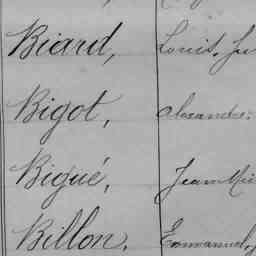 Biard, Louis, Ju
Bigot, Alexandre
Bigué, Jean Mic
Billon, Emmanuel,